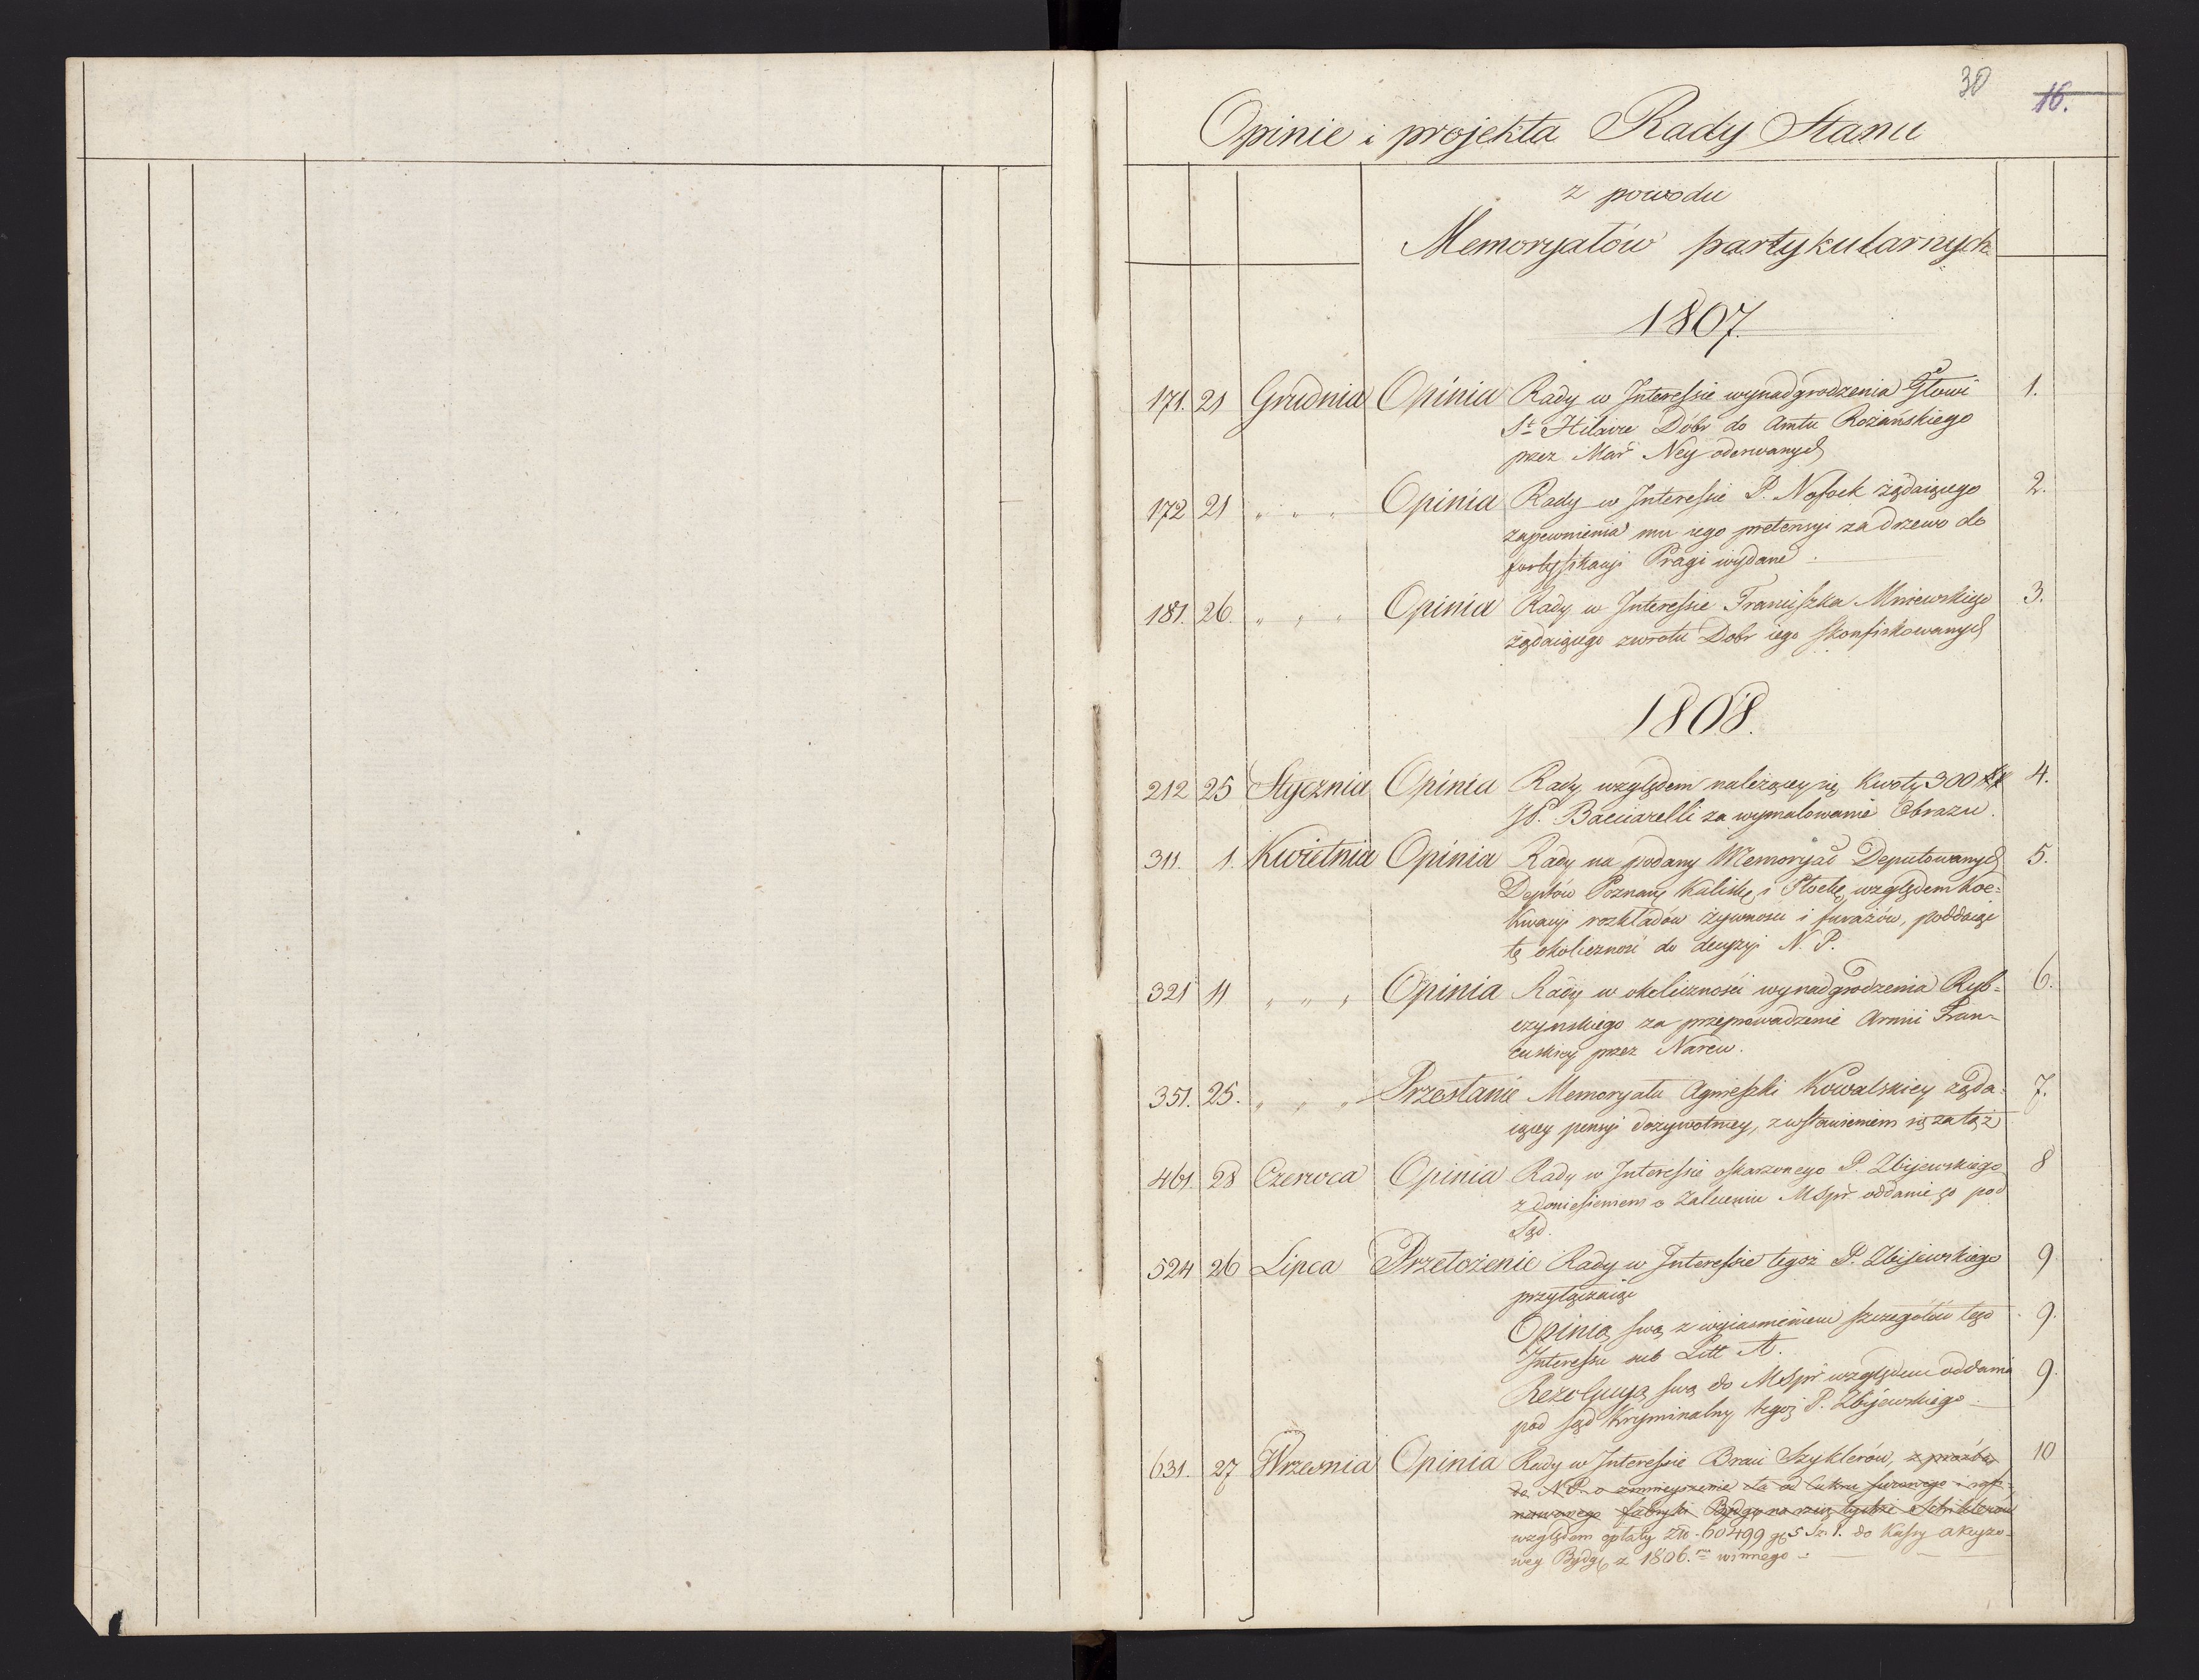 30
16.
Opinie i projekta Rady Stanu
z powodu
Memoryałów partykularnych
1807.
171. 21 Grudnia Opinia Rady w Interessie wynadgrodzenia Głowi 1.
St Hilaire Dóbr do Amtu Rożańskiego
przez Mar Ney oderwanych
172 21 " " " Opinia Rady w Interessie P. Nofock żądaiącego 2.
zapewnienia mu iego pretensyi za drzewo do
fortyfikacyi Pragi wydane
181. 26. " " " Opinia Rady w Interessie Franciszka Mniewskiego 3.
żądaiącego zwrotu Dobr iego skonfiskowanych
1808.
212 25 Stycznia Opinia Rady względem należącey się kwoty 300 4.
JP. Bacciarelli za wymalowanie Obrazu.
311. 1. Kwietnia Opinia Rady na podany Memoryał Deputowanych 5.
Deptów Poznanᵍ Kaliskᵍ i Płockᵍ względem Koe=
kwacyi rozkładów żywnosci i furażów, poddaiąc
tę okoliczność do decyzyi N. P.
321 11 " " " Opinia Rady w okoliczności wynadgrodzenia Ryb=
6.
czynskiego za przeprowadzenie Armii Fran=
cuskiey przez Narew.
351. 25. " " " Przesłanie Memoryału Agnieszki Kowalskiey żąda= 7.
iącey pensyi dożywotniey, z wstawieniem się za tąż
461. 28 Czerwca Opinia Rady w Interessie oskarzonego P. Zbijewskiego 8
z doniesieniem o Zaleceniu MSpr oddanie go pod
Sąd.
524 26 Lipca Przełożenie Rady w Interessie tegoż P. Zbijewskiego 9
przyłączaiąc
Opinią swą z wyiasnieniem szczegółów tego 9.
Interessu sub Litt A.
Rezolucyą swą do MSpr względem oddania 9
pod sąd Kryminalny tegoż P. Zbijewskiego
631. 27 Wrzesnia Opinia Rady w Interessie Braci Szyklerów, z prozbą 10
do N.P. o zmnieyszenie cła od Cukru surowego i rafi=
nowanego fabryki Bydgo
względem opłaty Złb. 60499 g 5 sz. 1. do Kassy akcyzo=
wey Bydgᵍ z 1806. winnego